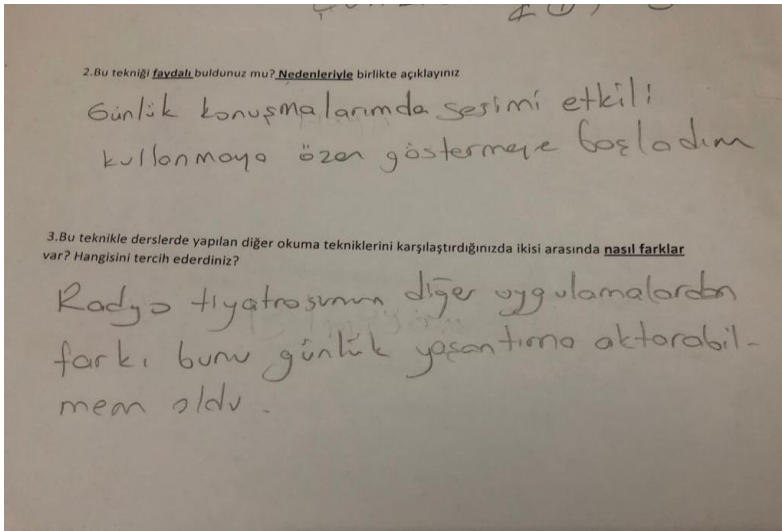 2.Bu tekniği faydalı buldunuz mu? Nedenleriyle birlikte açıklayınız
Günlük konuşmalarımda sesimi etkili
kullanmaya özen göstermeye başladım
3.Bu teknikle derslerde yapılan diğer okuma tekniklerini karşılaştırdığınızda ikisi arasında nasıl farklar
var? Hangisini tercih ederdiniz?
Radyo tiyatrosunun diğer uygulamalardan
farkı bunu günlük yaşantıma aktarabil-
mem oldu.